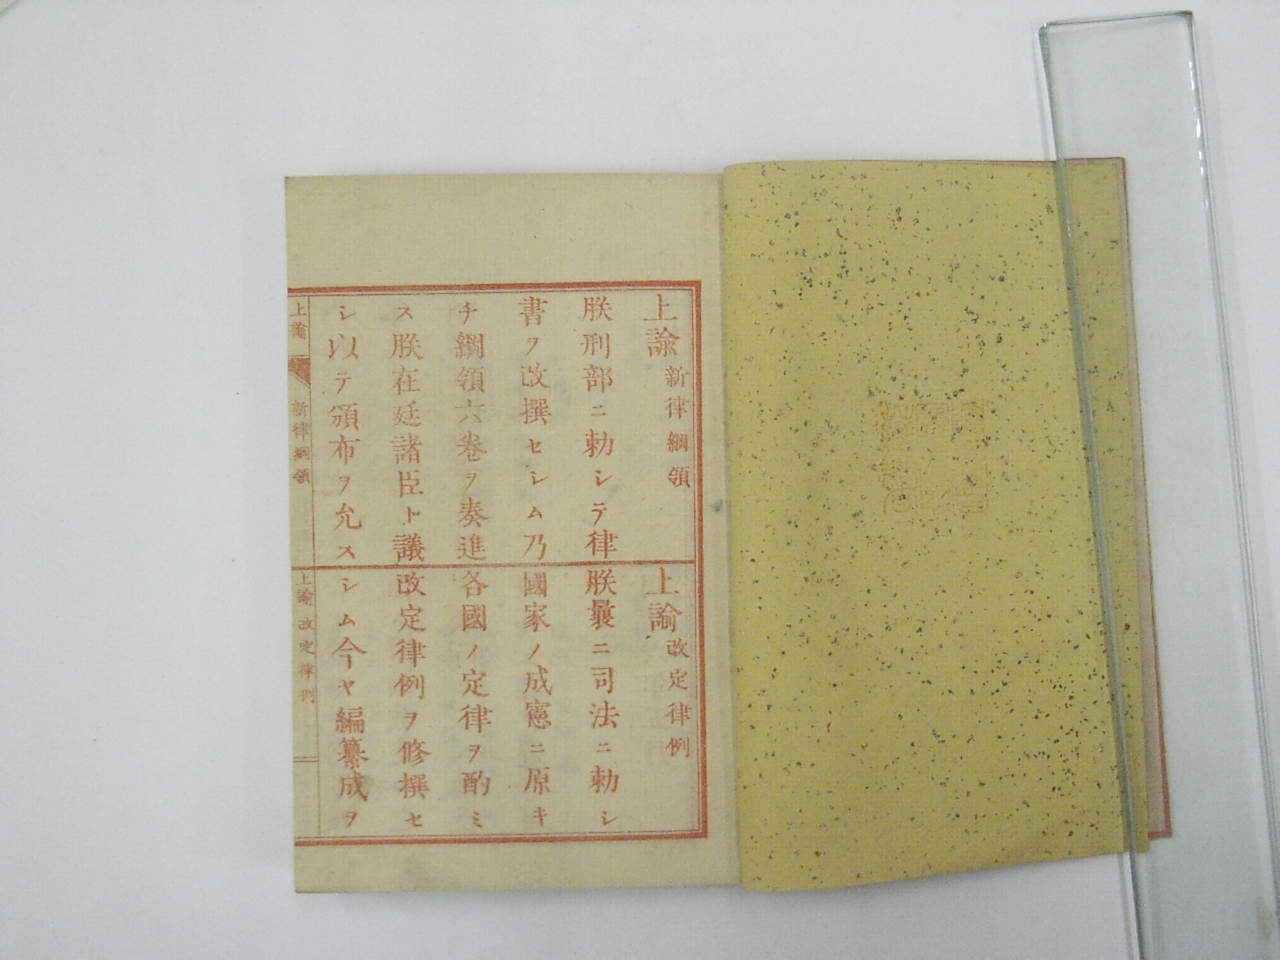 上諭 新律綱領
朕刑部ニ勅シテ律
書ヲ改撰セシム乃
チ綱領六卷ヲ奏進
ス朕在廷諸臣ト議
シ以テ頒布ヲ允ス
上諭 改定律例
朕曩ニ司法ニ勅シ
國家ノ成憲ニ原キ
各國ノ定律ヲ酌ミ
改定律例ヲ修撰セ
シム今ヤ編纂成ヲ
上諭 新律綱領
上諭 改定律例